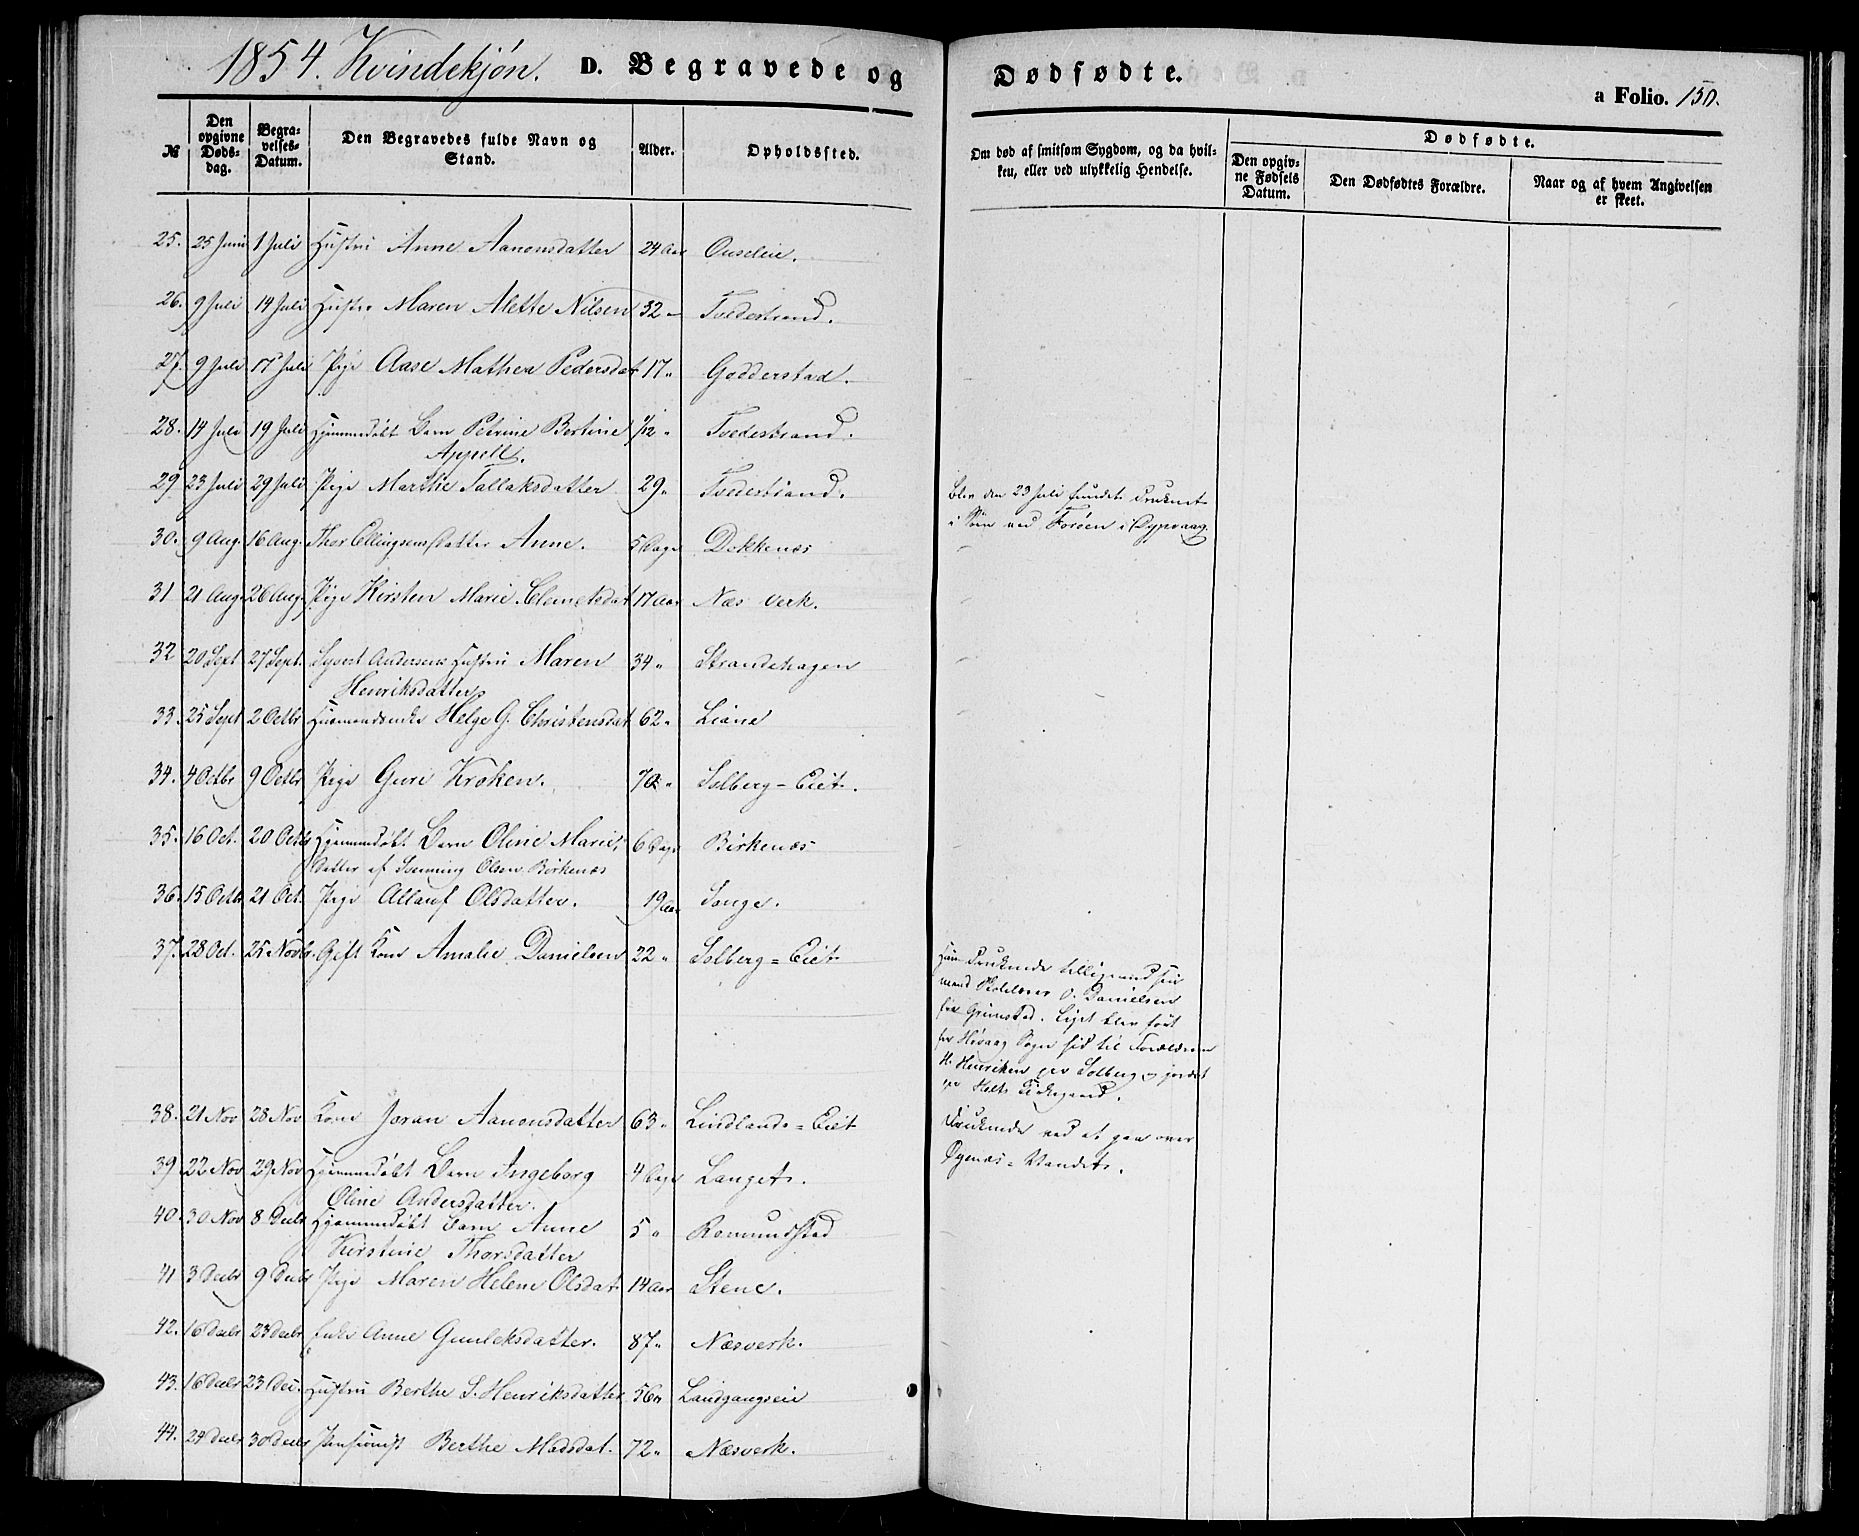 1854. Kvindekjøn. D. Begravede og Dødfødte.
a Folio. 150.
№ Den opgivne Dødsdag. Begravelses-Datum. Den Begravedes fulde Navn og Stand. Alder. Opholdssted. Om død af smitsom Sygdom, og da hvilken, eller ved ulykkelig Hendelse. Dødfødte. Den opgivne Fødsels Datum. Den Dødfødtes Forældre. Naar og af hvem Angivelsen er skeet.
25. 25 Juni 1 Juli Hustru Anne Aanonsdatter 24 Aar Ouseleie.
26. 9 Juli 14 Juli Hustru Maren Alette Nilsen 32 " Tvedestrand.
27. 9 Juli 17 Juli Pige Aase Mathea Pedersdat 17 " Godderstad.
28. 14 Juli 19 Juli Hjemmedøbt Barn Petrine Bertine 1/12 " Tvedestrand.
Appell.
29 23 Juli 29 Juli Pige Marthe Tallaksdatter 29 " Tvedestrand. Blev den 23 Juli fundet druknet
i Søen ved Forøen i Dypvaag
30. 9 Aug. 16 Aug. Thor Ellingsens Datter Anne. 5 Dage Dekkenæs
31 21 Aug. 26 Aug. Pige Kirsten Marie Clemetsdat 17 Aar Næs Verk.
32 20 Sept 27 Sept. Syvert Andersens Hustru Maren 34 " Strandehagen
Henriksdatter
33. 25 Sept 2 Octbr Huusmandsenke Helge G. Christensdat 62 " Liane
34. 4 Octbr 9 Octbr Pige Guri Krøken. 70 " Solberg-Eiet.
35. 16 Oct. 20 Octbr Hjemmedøbt Barn Oline Marie, 6 Dage Birkenæs
Datter af Svenning Olsen Birkenæs
36. 15 Octbr 21 Oct. Pige Allauf Olsdatter. 19 Aar Songe.
37. 28 Oct. 25 Novbr. Gift Kone Amalie Danielsen 22 " Solberg=Eiet
druknede tilligemed sin
mand O. Danielsen
Grimstad. Liget blev ført
Høvaag Sogn hid til Forældrene
H. Henriksen Solberg og jordet
Holts Kirkegaard.
38. 21 Nov 28 Nov Kone Joran Aanonsdatter 63 " Lindlands=Eiet Druknede ved at gaa over
Vandet.
39. 22 Nov 29 Nov Hjemmedøbt Barn Ingeborg 4 Dage Langet.
Oline Andersdatter.
40. 30 Nov 8 Decbr Hjemmedøbt Barn Anne 5 " Romundstad
Kirstine Thorsdatter
41 3 Decbr 9 Decbr Pige Maren Helene Olsdat. 14 Aar Stene.
42. 16 Decbr 23 Decbr Enke Anne Gunleksdatter. 87 " Næsverk.
43. 16 Decbr 23 Dec. Hustru Berthe S. Henriksdatter 56 " Landgangseie
44. 24 Decbr 30 Decbr Pensionist Berthe Madsdat. 72 " Næsverk.